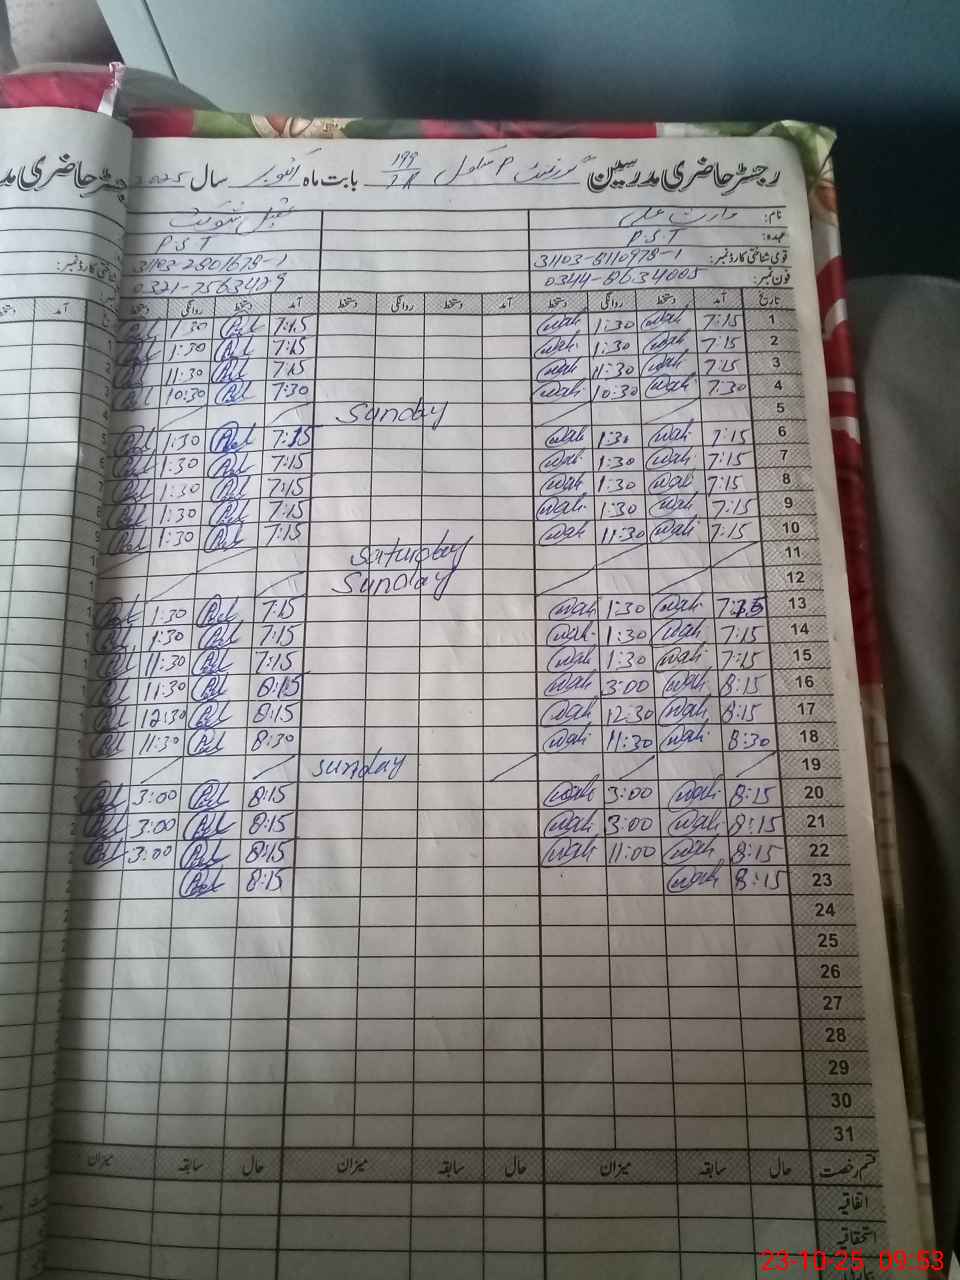 رجسٹر حاضری مدرسین گورنمنٹ P سکول 199/7R بابت ماہ اکتوبر سال 2025
نام: وارث علی
شوکت
عہدہ: P.S.T P.S.T
قومی شناختی کارڈ نمبر: 31103-8110978-1 31103-2801678-1
فون نمبر: 0344-8634005 0321-7563429
تاریخ آمد دستخط روانگی دستخط آمد دستخط روانگی دستخط آمد دستخط روانگی دستخط
1 7:15 Wali 1:30 Wali 7:15 1:30
2 7:15 Wali 1:30 Wali 7:15 1:30
3 7:15 Wali 11:30 Wali 7:15 11:30
4 7:30 Wali 10:30 Wali 7:30 10:30
5 Sunday
6 7:15 Wali 1:30 Wali 7:15 1:30
7 7:15 Wali 1:30 Wali 7:15 1:30
8 7:15 Wali 1:30 Wali 7:15 1:30
9 7:15 Wali 1:30 Wali 7:15 1:30
10 7:15 Wali 11:30 Wali 7:15 1:30
11 Saturday
12 Sunday
13 7:15 Wali 1:30 Wali 7:15 1:30
14 7:15 Wali 1:30 Wali 7:15 1:30
15 7:15 Wali 1:30 Wali 7:15 11:30
16 8:15 Wali 3:00 Wali 8:15 11:30
17 8:15 Wali 12:30 Wali 8:15 12:30
18 8:30 Wali 11:30 Wali 8:30 11:30
19 Sunday
20 8:15 Wali 3:00 Wali 8:15 3:00
21 8:15 Wali 3:00 Wali 8:15 3:00
22 8:15 Wali 11:00 Wali 8:15 3:00
23 8:15 Wali 8:15
24
25
26
27
28
29
30
31
قسم رخصت حال سابقہ میزان حال سابقہ میزان حال سابقہ میزان
اتفاقیہ
استحقاقیہ
23-10-25 09:53